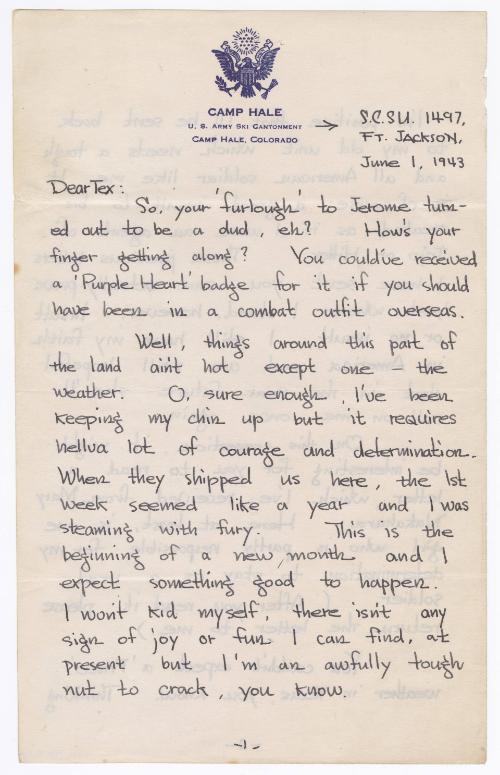 CAMP HALE
U. S. ARMY SKI CANTONMENT
CAMP HALE, COLORADO
→ S.C.S.U. 1497,
FT. JACKSON,
June 1, 1943
Dear Tex:
So, your 'furlough' to Jerome turn-
ed out to be a dud, eh? How's your
finger getting along? You could've received
a 'Purple Heart' badge for it if you should
have been in a combat outfit overseas.
Well, things around this part of
the land ain't hot except one – the
weather. O, sure enough, I've been
keeping my chin up but it requires
helluva lot of courage and determination.
When they shipped us here, the 1st
week seemed like a year and I was
steaming with fury. This is the
beginning of a new month and I
expect something good to happen.
I won't kid myself, there isn't any
sign of joy or fun I can find, at
present but I'm an awfully tough
nut to crack, you know.
-1-